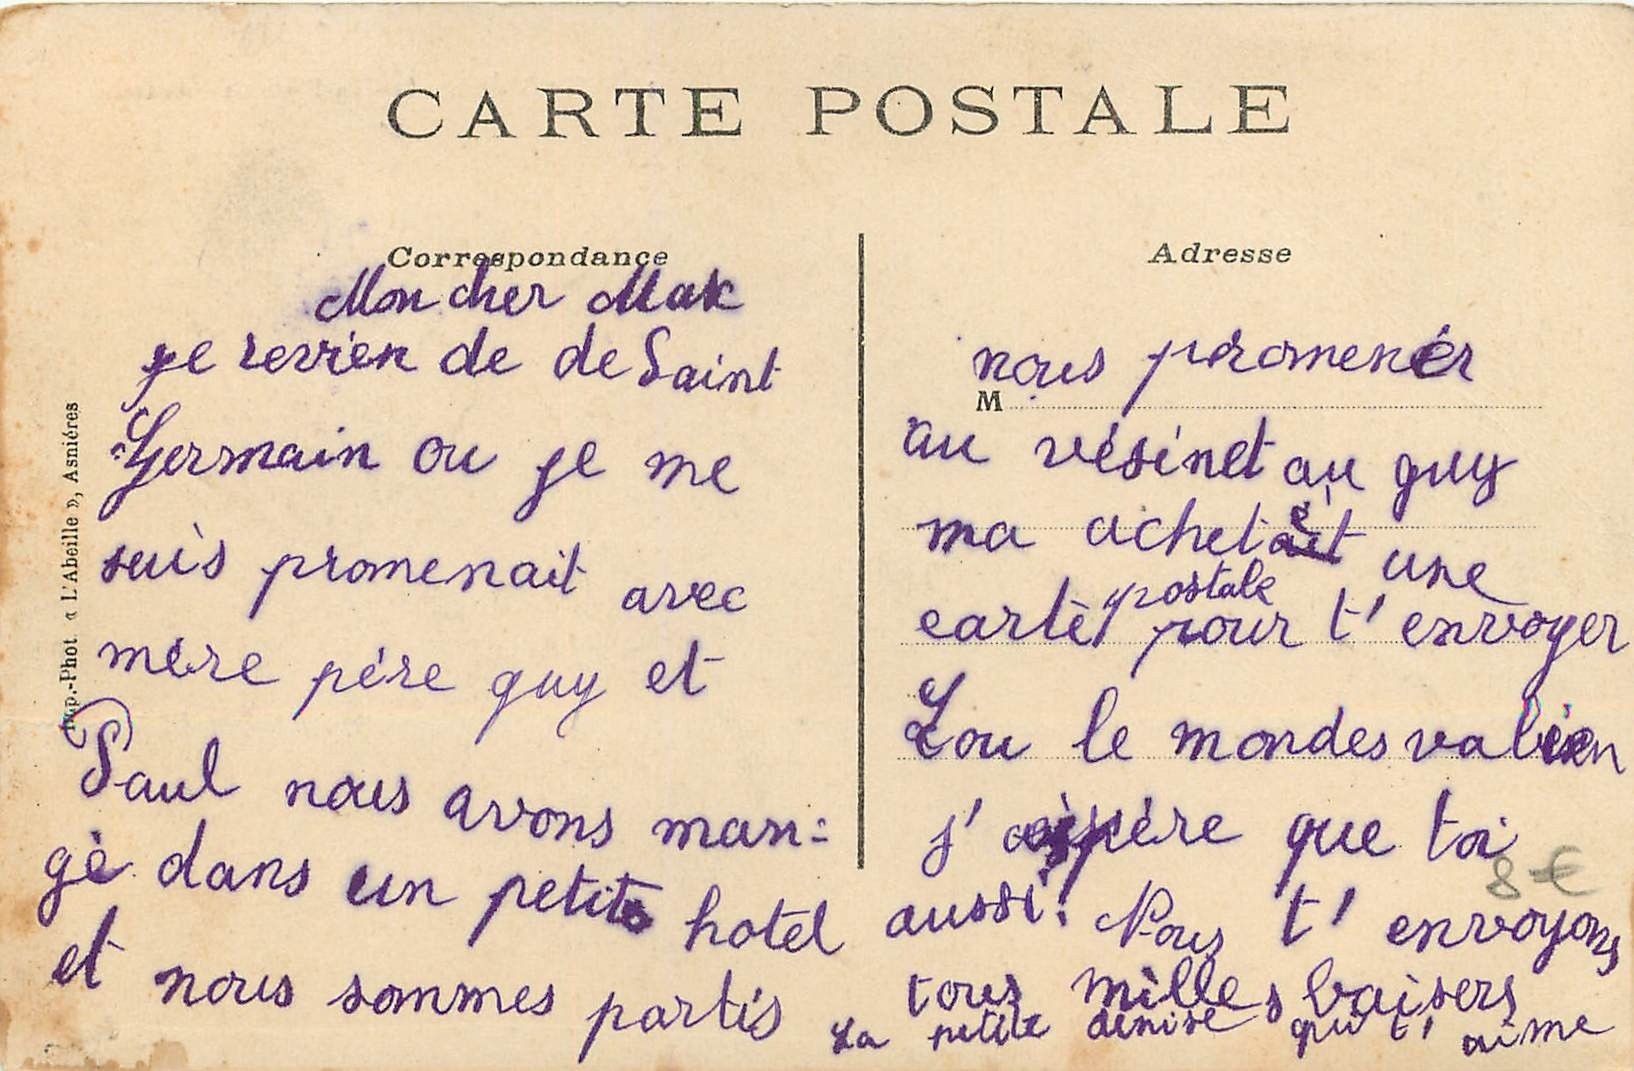 CARTE POSTALE
Correspondance
Mon cher Mak
je revien de de Saint
Germain ou je me
suis promenait avec
mére pére guy et
Paul nous avons man-
gè dans un petit hotel
et nous sommes partis
Imp.-Phot « L'Abeille », Asnières
Adresse
nous promenér
M
au vésinet au guy
ma acheté une
carte postale pour t' envoyer
Tou le mondes va bien
j' espére que toi
aussi! Nous t' envoyons
tous milles baisers
La petite denise qui t' aime
8 €